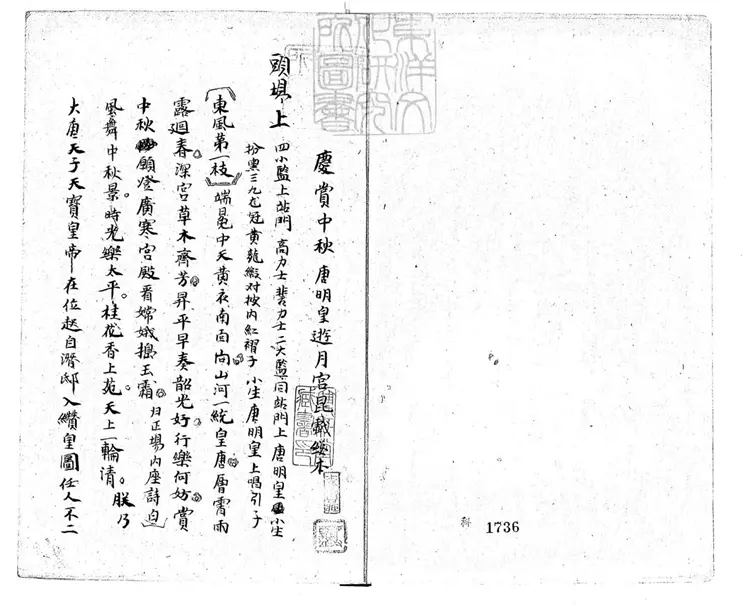 慶賞中秋 唐明皇遊月宮昆戲總本
頭場上
四小監上站門 高力士 裴力士二大監同站門上唐明皇小生
扮黑三九龙冠黄龍緞对按内紅褶子 小生唐明皇上唱引子
〔東風第一枝〕端冕中天黄衣南面向山河一統皇唐層霄雨
露迴春深宫草木齊芳昇平早奏韶光好行樂何妨賞
中秋願登廣寒宫殿看嫦娥搗玉霜 归正場内座詩白
風舞中秋景。時光樂太平。桂花香上苑。天上一輪清。朕乃
大唐天子天寶皇帝在位起自潛邸入纘皇圖任人不二
科 1736